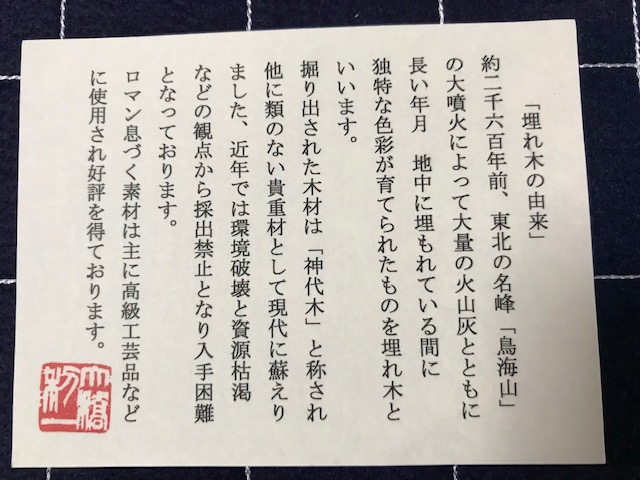 「埋れ木の由来」
約二千六百年前、東北の名峰「鳥海山」
の大噴火によって大量の火山灰とともに
長い年月　地中に埋もれている間に
独特な色彩が育てられたものを埋れ木と
いいます。
掘り出された木材は「神代木」と称され
他に類のない貴重材として現代に蘇えり
ました、近年では環境破壊と資源枯渇
などの観点から採出禁止となり入手困難
となっております。
ロマン息づく素材は主に高級工芸品など
に使用され好評を得ております。